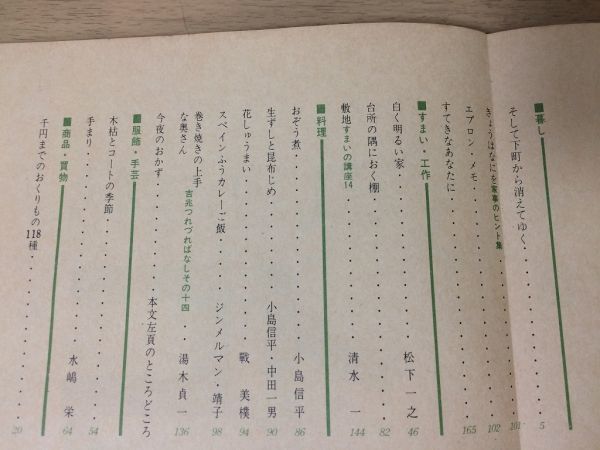 ■暮し
そして下町から消えてゆく 5
きょうはなにを 家事のヒント集 101
エプロン・メモ 102
すてきなあなたに 165
■すまい・工作
白く明るい家 松下一之 46
台所の隅におく棚 82
敷地 すまいの講座14 清水一 144
■料理
おぞう煮 小島信平 86
生ずしと昆布じめ 小島信平・中田一男 90
花しゅうまい 戰美樸 94
スペインふうカレーご飯 ジンメルマン・靖子 98
巻き焼きの上手な奥さん 吉兆つれづればなしその十四 湯木貞一 136
今夜のおかず 本文左頁のところどころ
■服飾・手芸
木枯とコートの季節 54
手まり 水嶋栄 64
■商品・買物
千円までのおくりもの118種 20